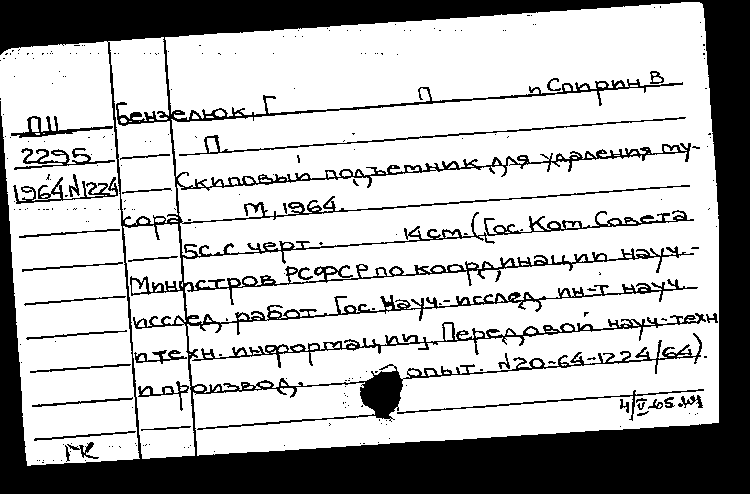 ПII Бензелюк, Г П и Спирин, В
2295 П.
1964.N1224 Скиповый подъемник для удаления му-
сора. М, 1964.
5с. с черт. 14см. (Гос. Ком. Совета
Министров РСФСР по координации науч.-
исслед. работ. Гос. Науч.-исслед. ин-т науч.
и техн. информации. Передовой науч-техн
и производ. опыт. N20-64-1224/64).
4/V-65.
ГК